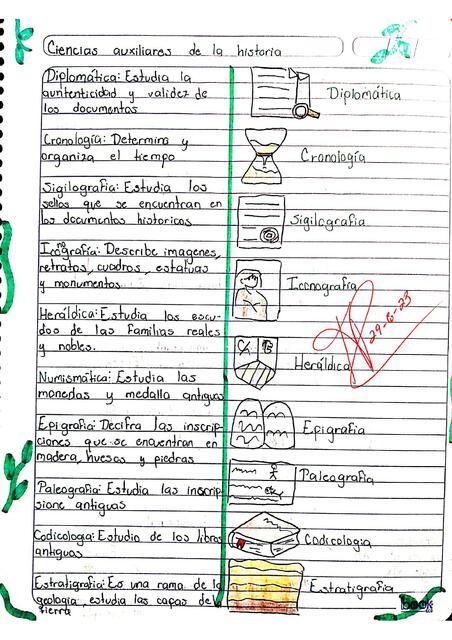 Ciencias auxiliares de la historia
Diplomática: Estudia la
auntenticidad y validez de
los documentos
Diplomática
Cronología: Determina y
organiza el tiempo
Cronología
Sigilografia: Estudia los
sellos que se encuentran en
los documentos historicos
Sigilografia
Icnografía: Describe imagenes,
no
retratos, cuadros, estatuas
y monumentos.
Iconografia
Heráldica: Estudia los escu-
dos de las familias reales
y nobles.
Heráldica
29-6-23
Numismática: Estudia las
monedas y medalla antiguas
Epigrafia: Decifra las inscrip-
ciones que se encuentran en
madera, huesos y piedras
Epigrafia
Paleografia: Estudia las inscrip-
sione antiguas
Paleografia
Codicologa: Estudio de los libros
antiguos
Codicologia
Estratigrafia: Es una rama de la
geologia, estudia las capas de la
tierra
Estratigrafia
book